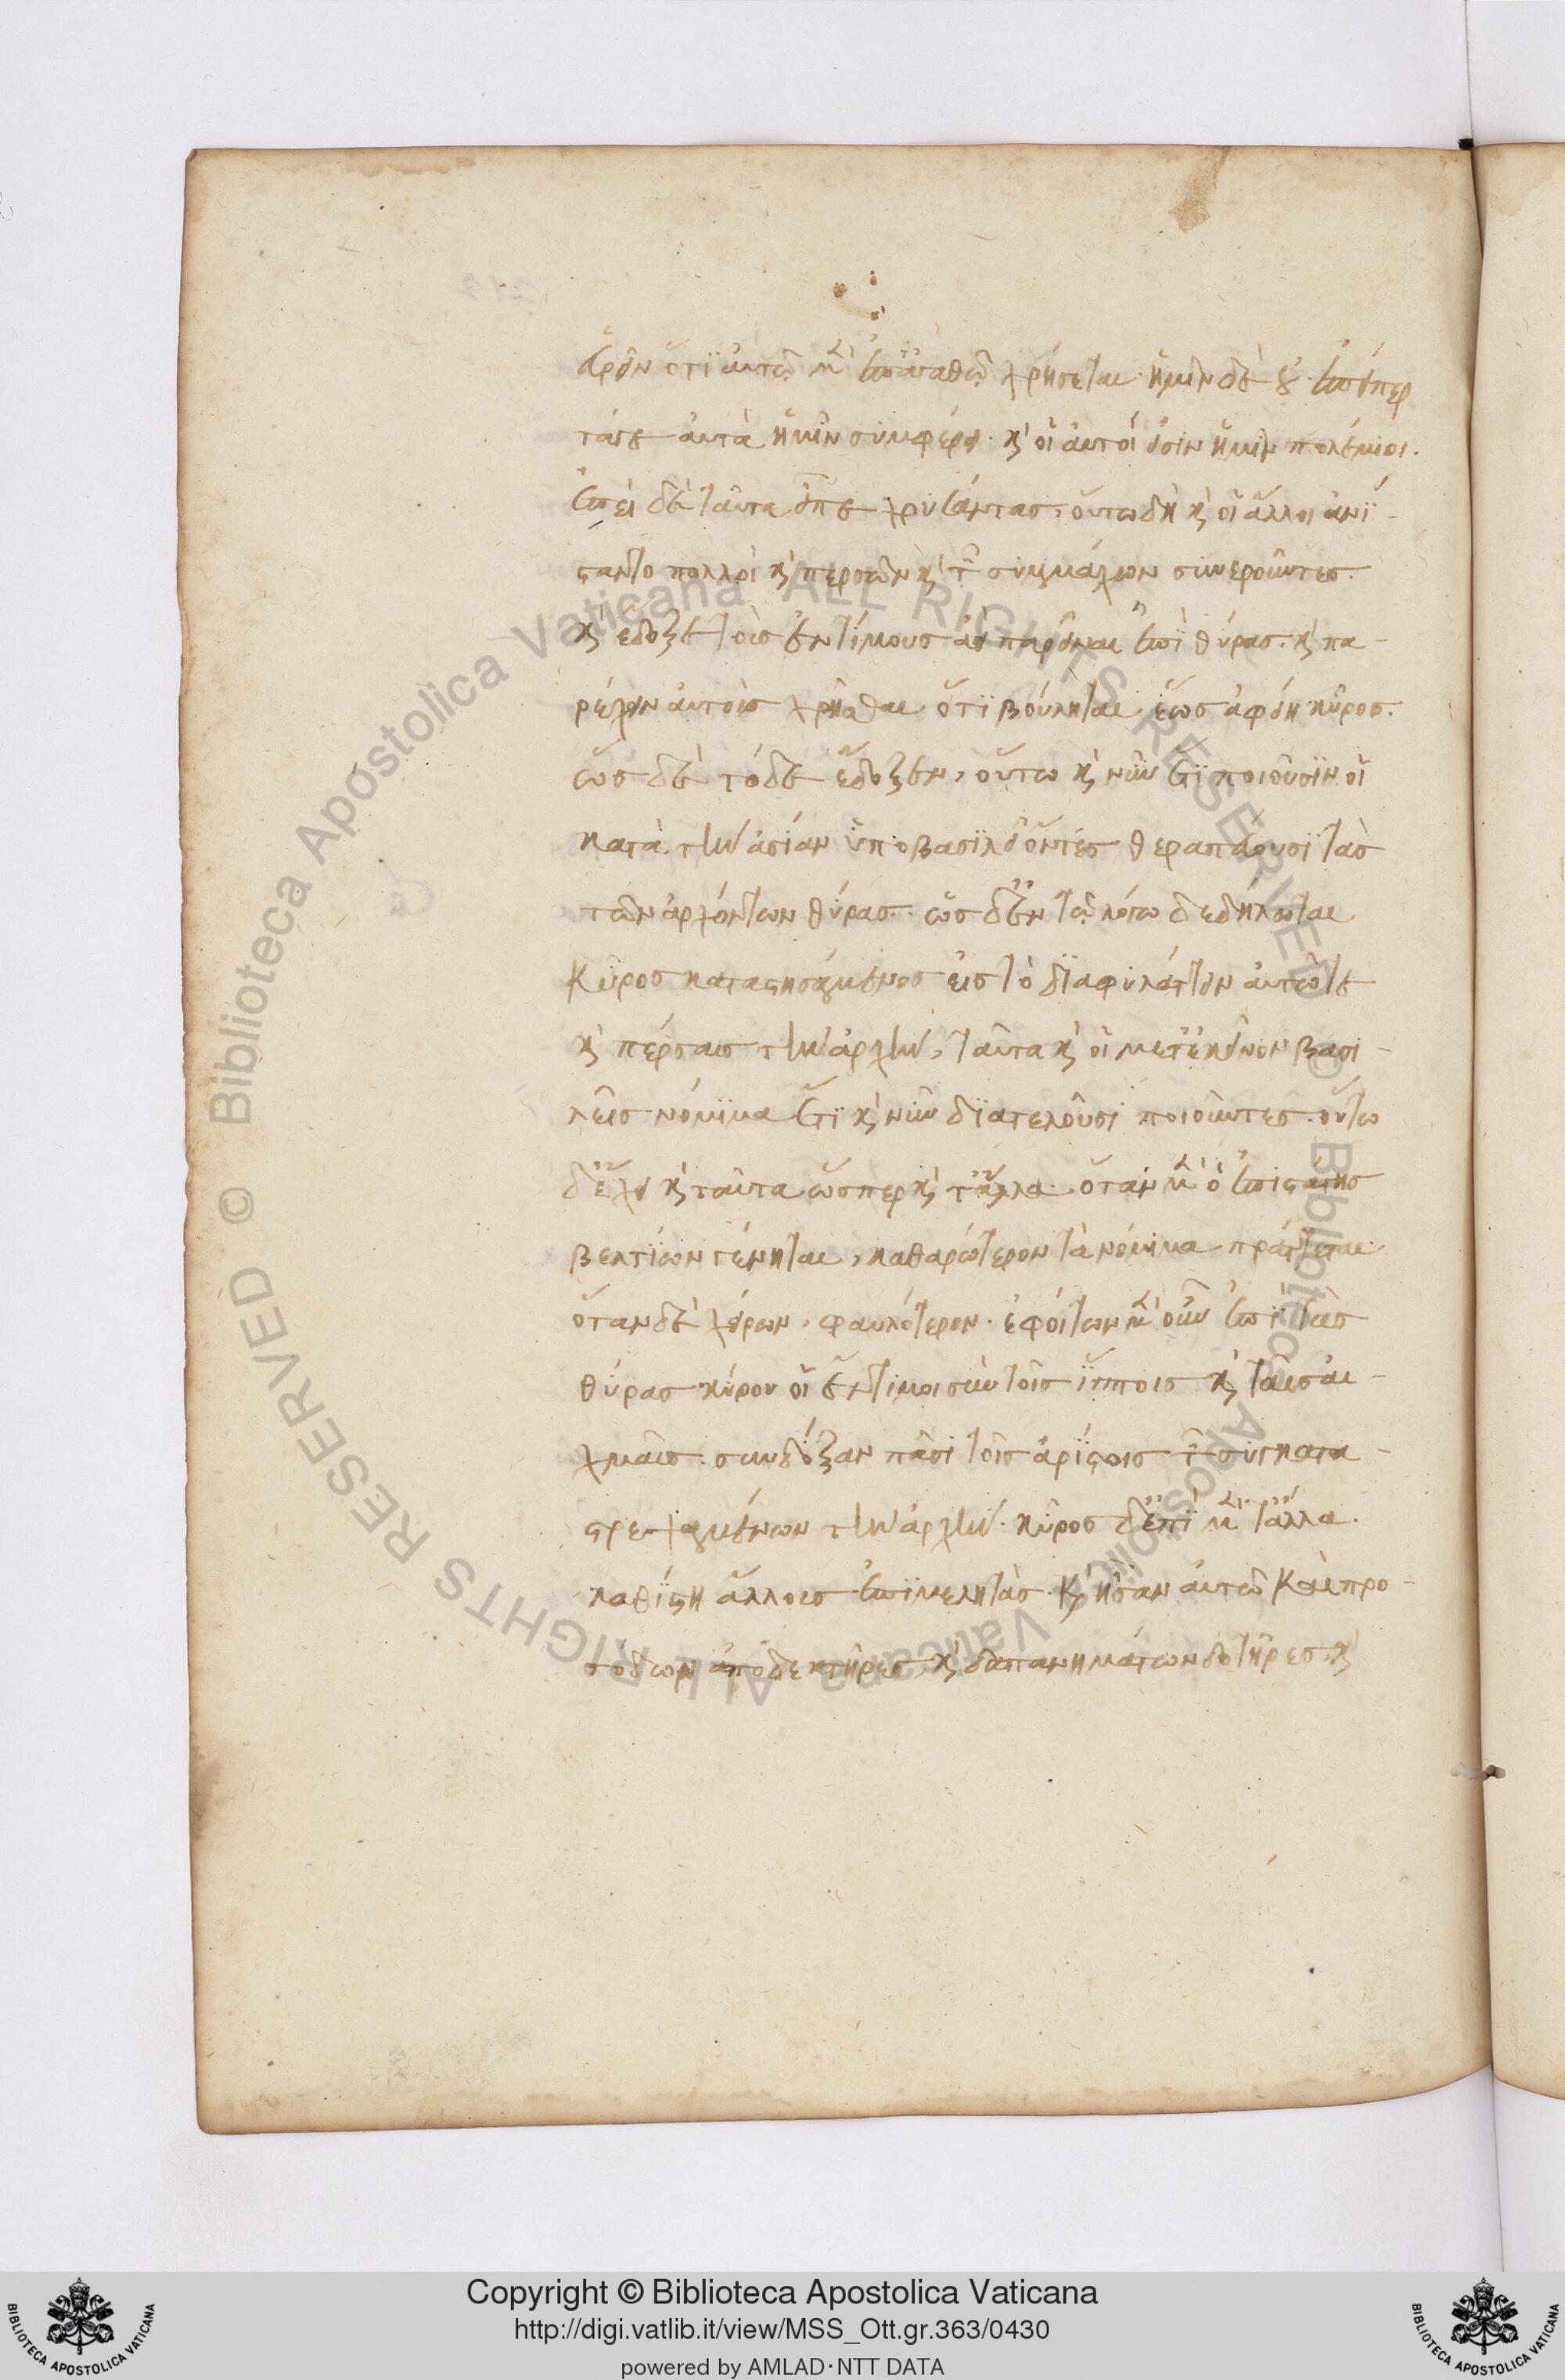 εὑρεῖν ὅτι αὑτῷ μὲν ἐπ' ἀγαθῷ χρήσεται ἡμῖν δὲ οὔ. ἐπείπερ
τάγε αὐτὰ ἡμῖν συμφέρει. καὶ οἱ αὐτοί εἰσιν ἡμῖν πολέμιοι.
ἐπεὶ δὲ ταῦτα εἶπε χρυσάντας, οὕτω δὴ καὶ οἱ ἄλλοι ἀνί-
σταντο πολλοὶ καὶ περσῶν καὶ τῶν συμμάχων συνεροῦντες.
καὶ ἔδοξε τοὺς ἐντίμους ἀεὶ παρεῖναι ἐπὶ θύρας. καὶ πα-
ρέχειν αὑτοὺς χρῆσθαι ὅτι βούληται ἕως ἀφείη κῦρος.
ὡς δὲ τόδε ἔδοξεν, οὕτω καὶ νῦν ἔτι ποιοῦσιν οἱ
κατὰ τὴν ἀσίαν ὑπὸ βασιλεῖ ὄντες θεραπεύουσι τὰς
τῶν ἀρχόντων θύρας. ὡς δ' ἐν τῷ λόγῳ δεδήλωται
Κῦρος καταστησάμενος εἰς τὸ διαφυλάττειν αὑτῷ τε
καὶ πέρσαις τὴν ἀρχὴν, ταῦτα καὶ οἱ μετ' ἐκεῖνον βασι-
λεῖς νόμιμα ἔτι καὶ νῦν διατελοῦσι ποιοῦντες. οὕτω
δ' ἔχει καὶ ταῦτα ὥσπερ καὶ τἆλλα. ὅταν μὲν ὁ ἐπιστάτης
βελτίων γένηται, καθαρώτερον τὰ νόμιμα πράττεται
ὅταν δὲ χείρων, φαυλότερον. ἐφοίτων μὲν οὖν ἐπὶ τὰς
θύρας κύρου οἱ ἔντιμοι σὺν τοῖς ἵπποις καὶ ταῖς αἰ-
χμαῖς. συνδόξαν πᾶσι τοῖς ἀρίστοις τῶν συγκατα-
στρεψαμένων τὴν ἀρχήν. κῦρος δ' ἐπὶ μὲν τἄλλα.
καθίστη ἄλλους ἐπιμελητὰς. Καὶ ἦσαν αὐτῷ Καὶ προ-
σόδων ἀποδεκτῆρες, καὶ δαπανημάτων δοτῆρες. καὶ
Copyright © Biblioteca Apostolica Vaticana
http://digi.vatlib.it/view/MSS_Ott.gr.363/0430
powered by AMLAD·NTT DATA